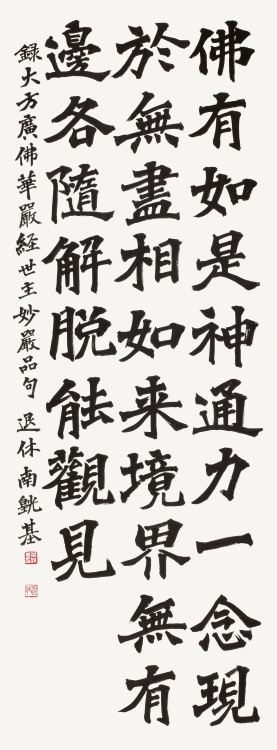 佛有如是神通力一念現
於無盡相如来境界無有
邊各隨解脱能觀見
録大方廣佛華嚴経世主妙嚴品句 退休南魮基